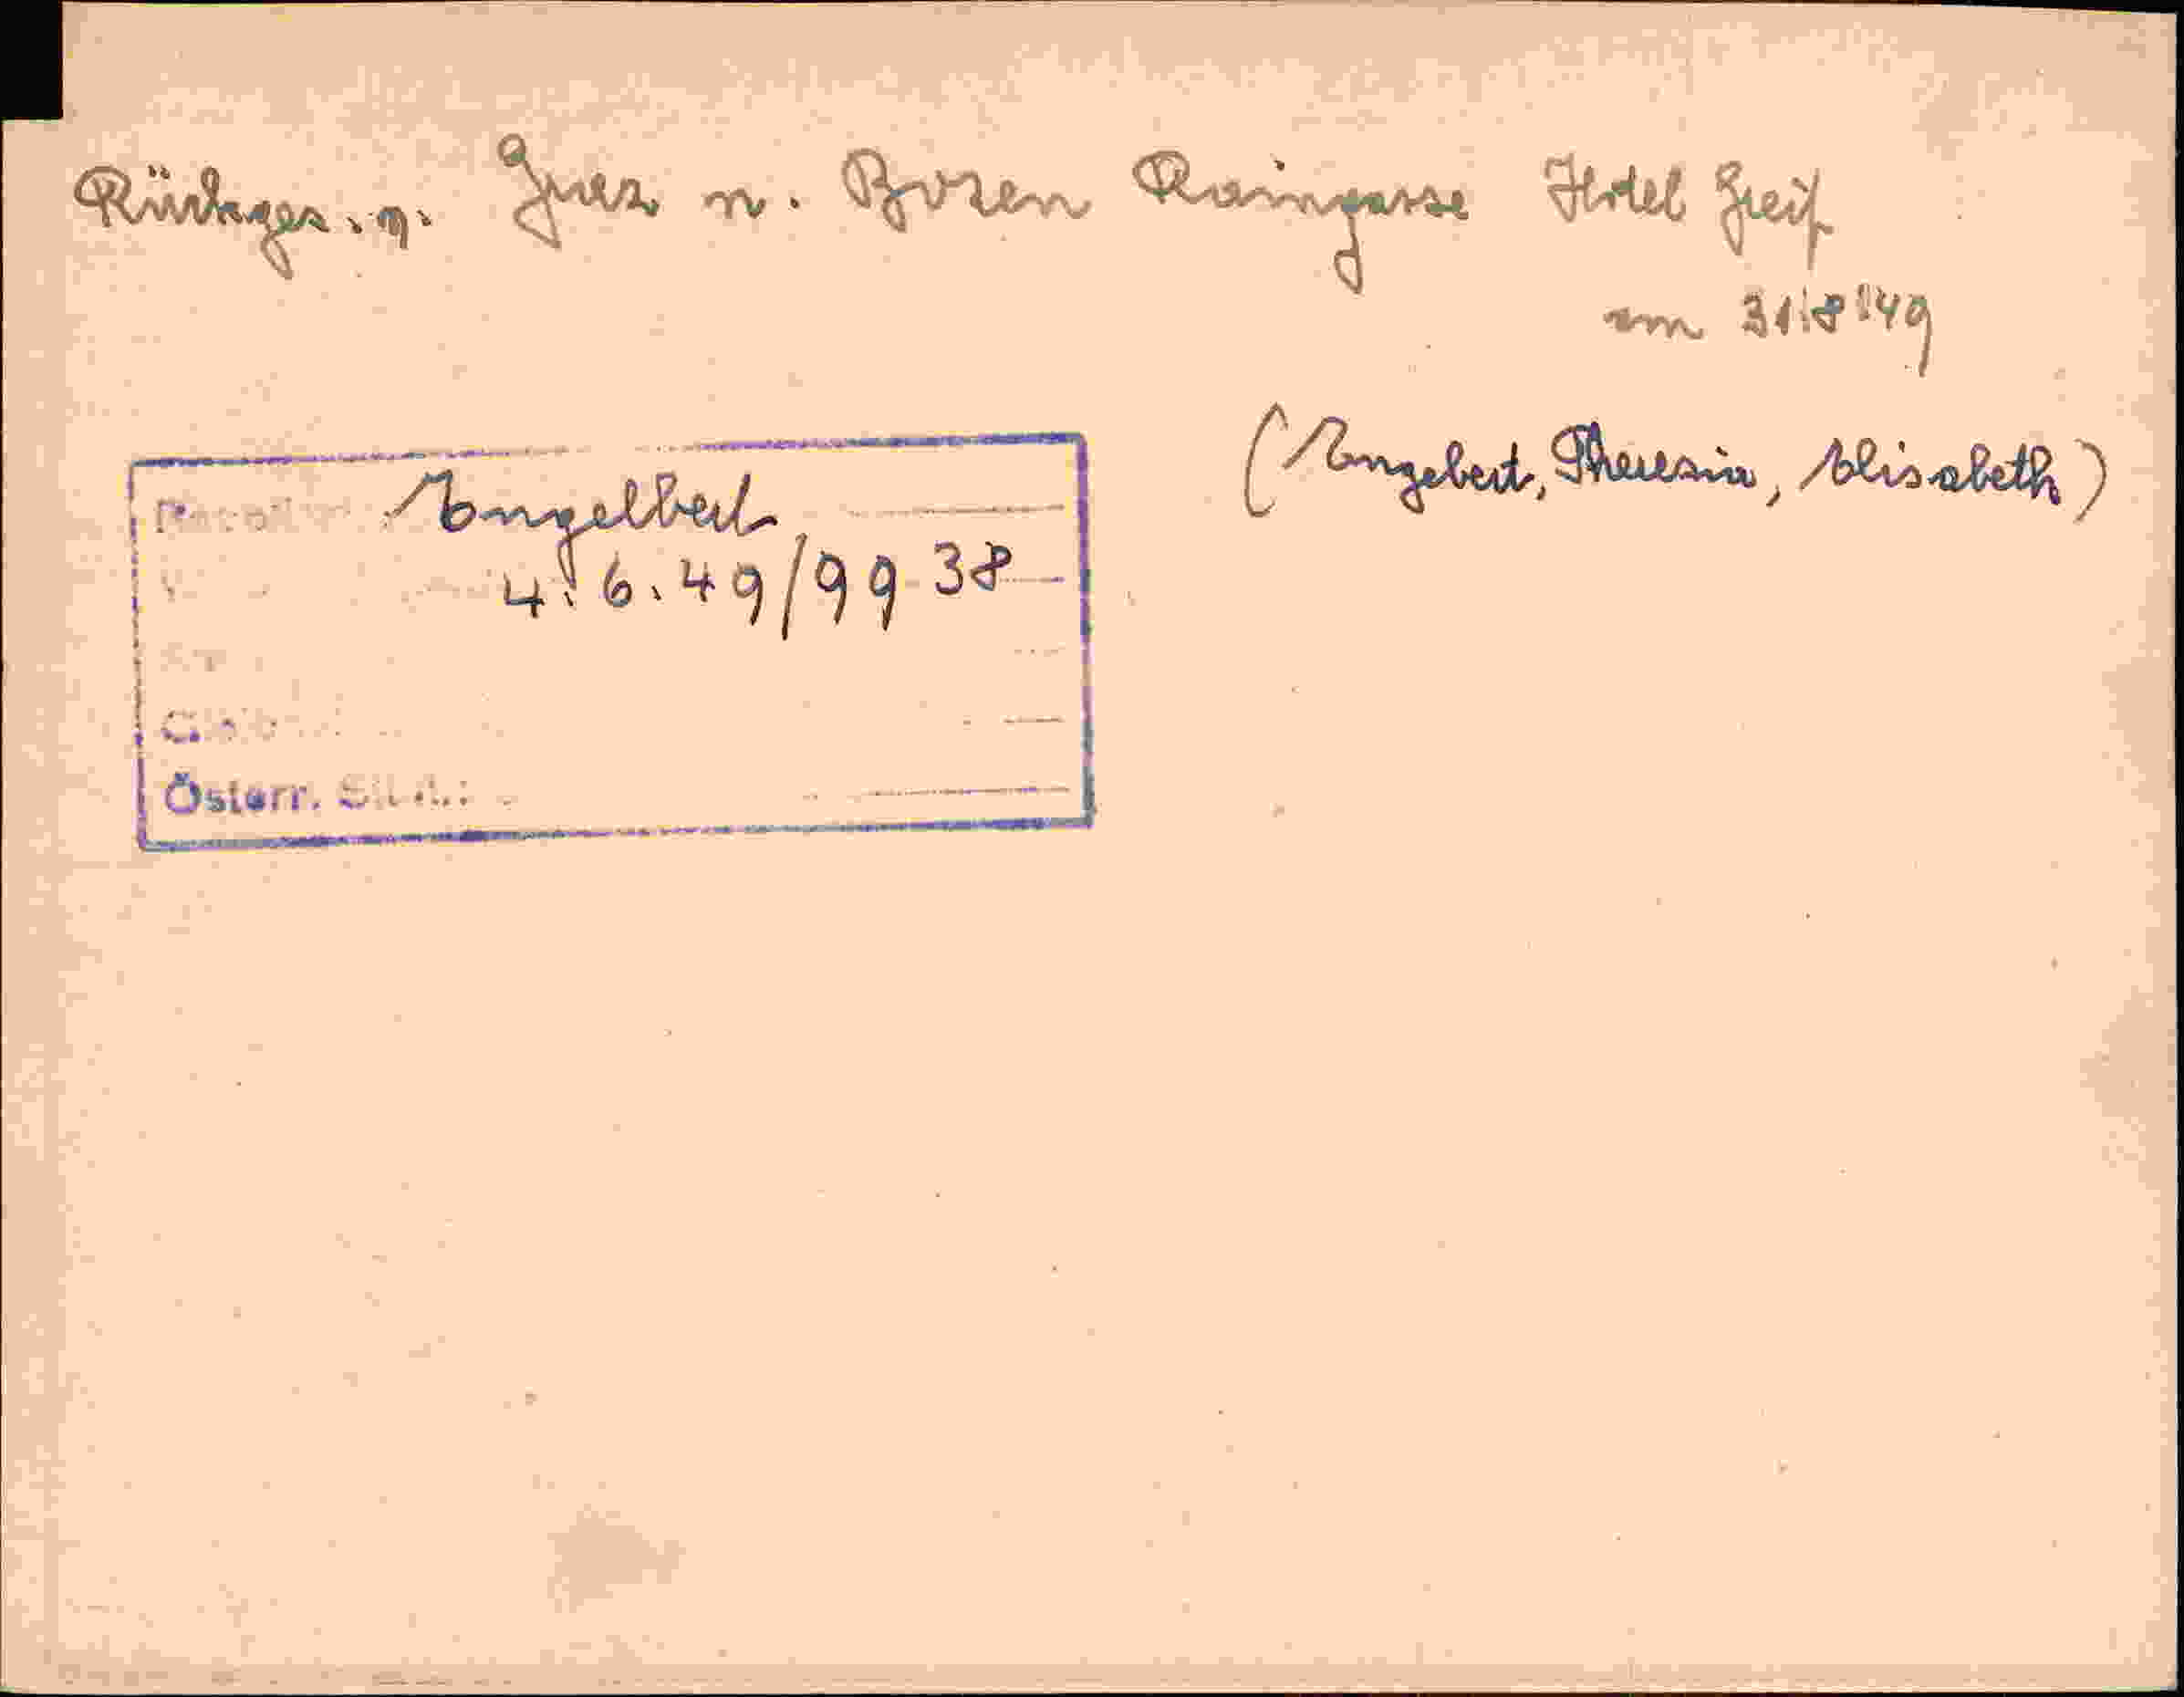 Rücksges. n. Graz n. Bozen Raingasse Hotel Greif
am 31.8.49
(Engebert, Theresia, Elisabeth)
Engelbert
4.6.49/99 38
Österr.